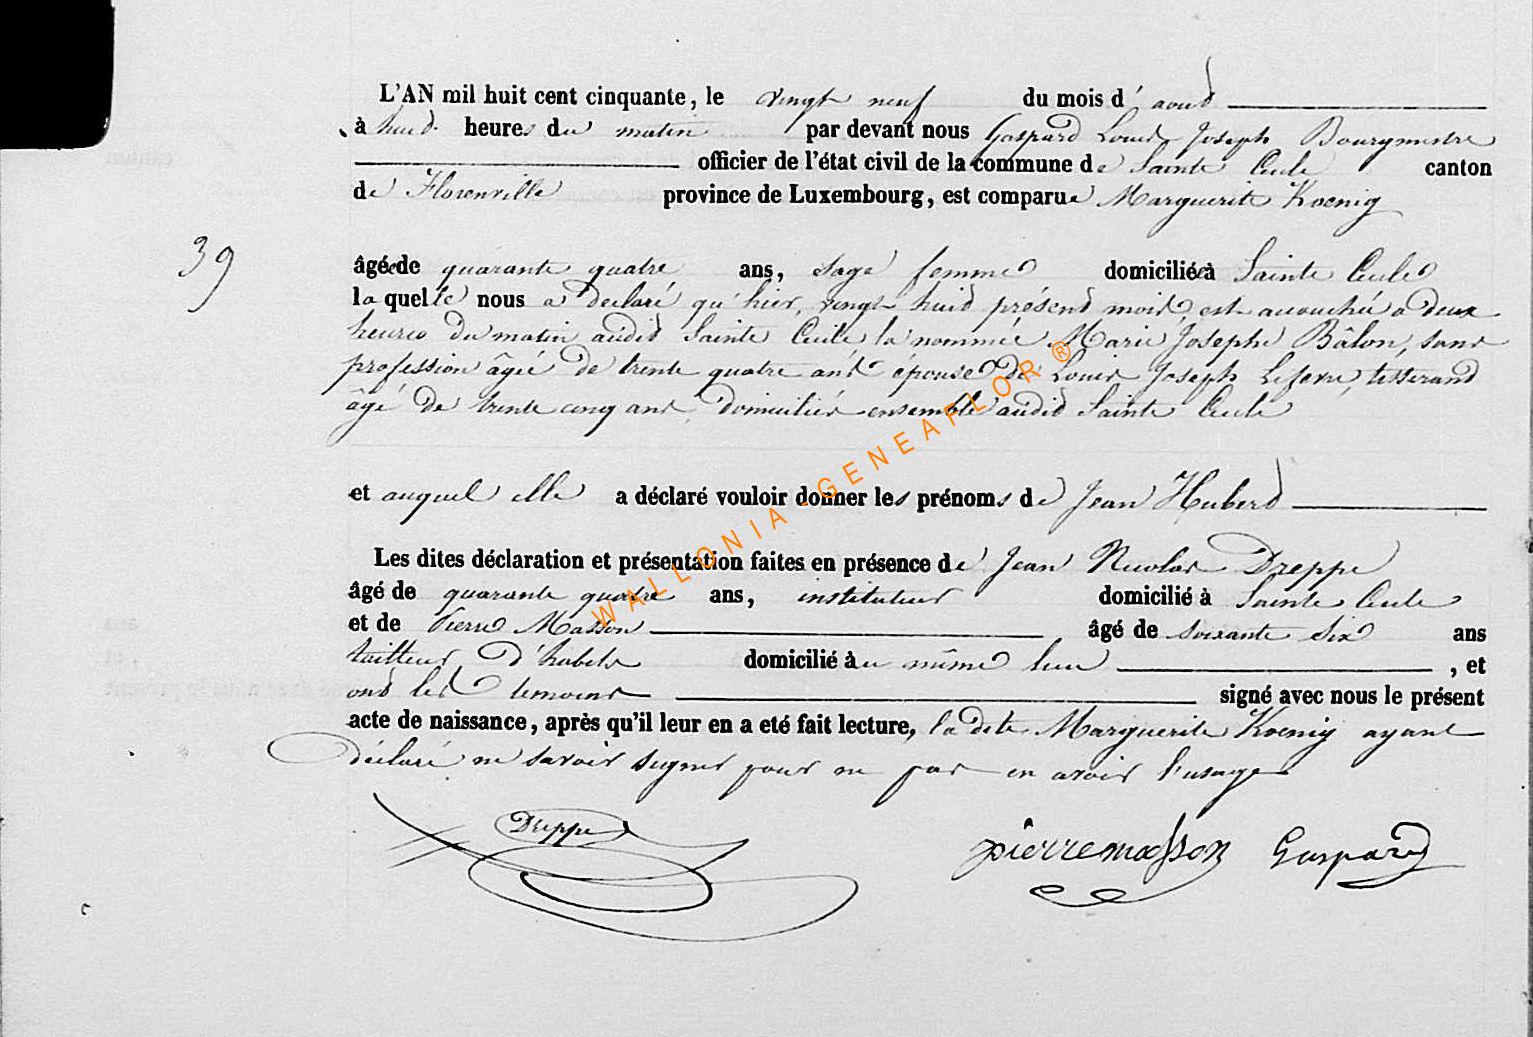 L'AN mil huit cent cinquante, le vingt neuf du mois d'aoud
à huid heures du matin par devant nous Gaspard Louis Joseph Bourgmestre
officier de l'état civil de la commune de Sainte Cecile canton
de Florenville province de Luxembourg, est comparue Marguerite Koenig
39
âgée de quarante quatre ans, sage femme domiciliée à Sainte Cecile
la quelle nous a declaré qu'hier, vingt huid présend mois est accouchée a deux
heures du matin audid Sainte Cecile la nommée Marie Josephe Bâlon, sans
profession âgée de trente quatre ans épouse de Louis Joseph Lefevre, tisserand
âgé de trente cinq ans, domiciliés ensemble audid Sainte Cecile
et auquel elle a déclaré vouloir donner les prénoms de Jean Huberd
Les dites déclaration et présentation faites en présence de Jean Nicolas Dreppe
âgé de quarante quatre ans, instituteur domicilié à Sainte Cecile
et de Pierre Masson âgé de soixante six ans
tailleur d'habits domicilié au même lieu , et
ond les temoins signé avec nous le présent
acte de naissance, après qu'il leur en a eté fait lecture, la dite Marguerite Koenig ayant
déclaré ne savoir signer pour ne pas en avoir l'usage
Dreppe pierre masson Gaspard
WALLONIA-GENEAFLOR ®